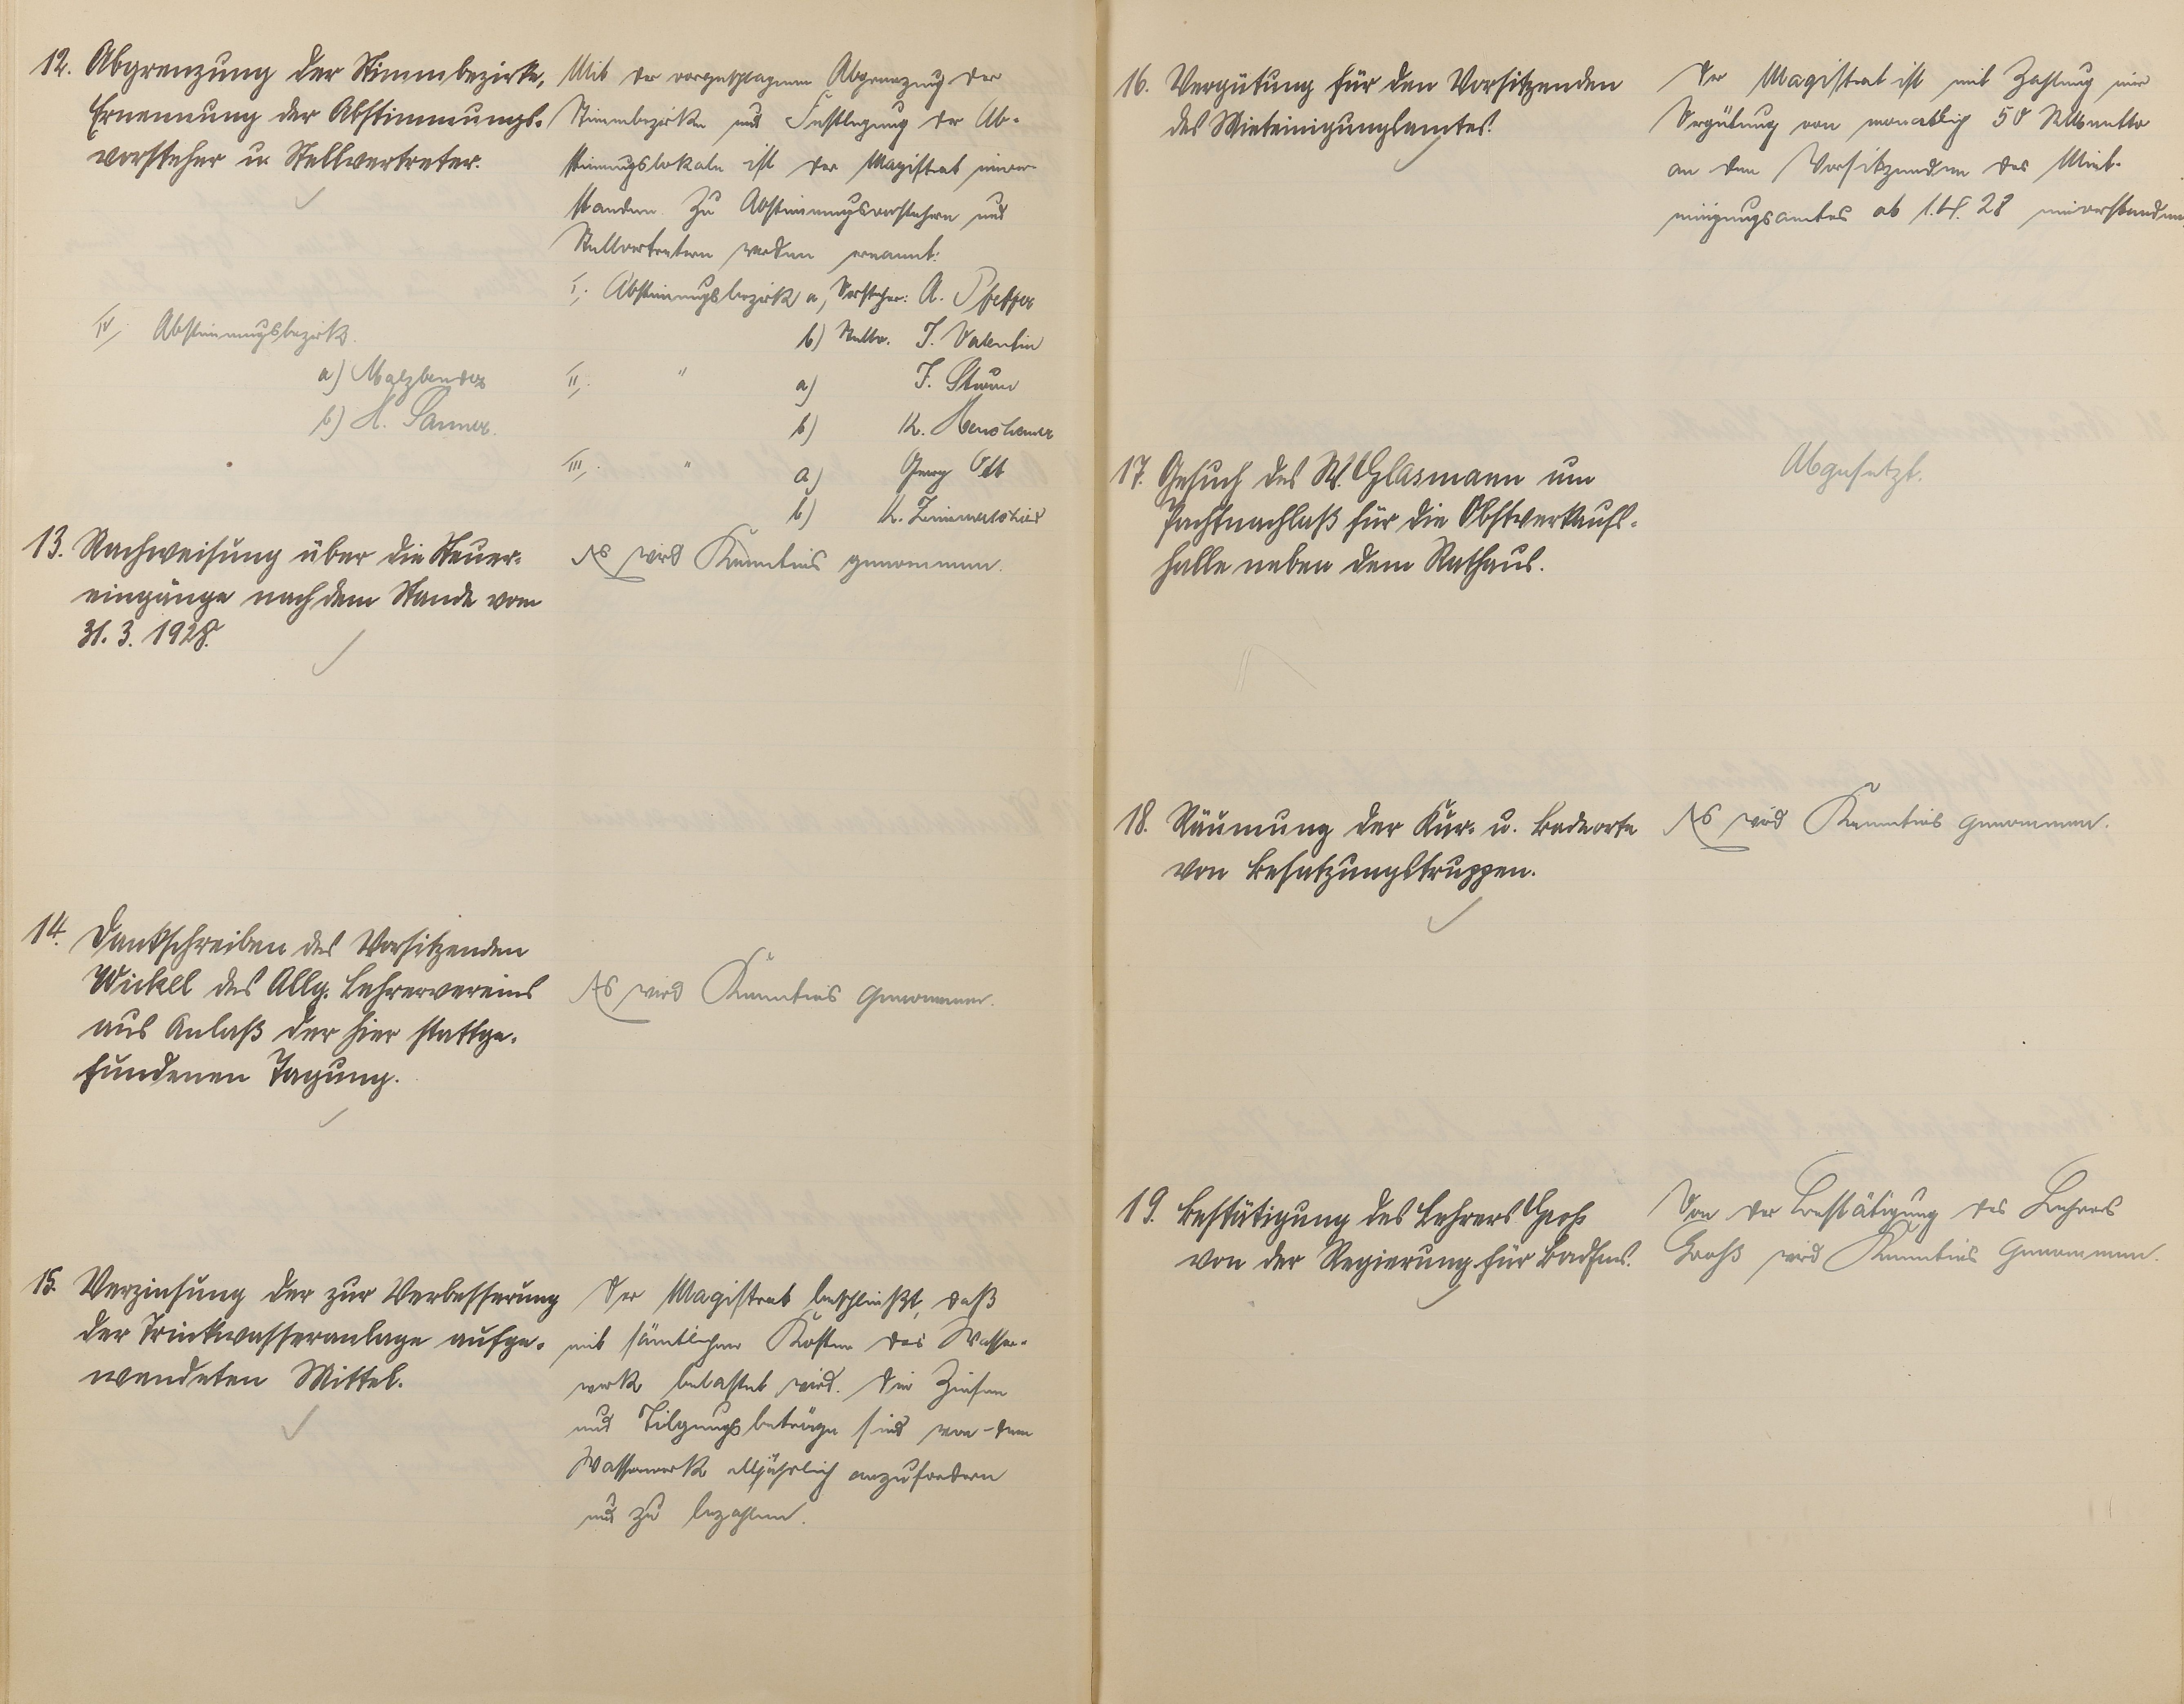 12. Abgrenzung der Stimmbezirke,
Ernennung der Abstimmungs-
vorsteher u. Stellvertreter.
Mit der vorgeschlagenen Abgrenzung der
Stimmbezirke und Festlegung der Ab-
stimmungslokale ist der Magistrat einver-
standen. Zu Abstimmungsvorstehern und
Stellvertretern werden ernannt:
I, Abstimmungsbezirk a, Vorsteher: A. Pfeffer
b) Stellv. J. Valentin
II, " a) J. Sturm
b) K.
III, " a) Georg Ott
b) K. Zimmerschied
IV, Abstimmungsbezirk.
a) Malzbender
b) H. Sanner.
13. Nachweisung über die Steuer-
eingänge nach dem Stande vom
31. 3. 1928.
Es wird Kenntnis genommen.
14. Dankschreiben des Vorsitzenden
Wickel des Allg. Lehrervereins
aus Anlaß der hier stattge-
fundenen Tagung.
Es wird Kenntnis genommen.
15. Verzinsung der zur Verbesserung
der Trinkwasseranlage aufge-
wendeten Mittel.
Der Magistrat beschließt, daß
mit sämtlichen Kosten das Wasser-
werk belastet wird. Die Zinsen
und Tilgungsbeträge sind von dem
Wasserwerk alljährlich anzufordern
und zu bezahlen.
16. Vergütung für den Vorsitzenden
des Mieteinigungsamtes.
Der Magistrat ist mit Zahlung einer
Vergütung von monatlich 50 RM netto
an den Vorsitzenden des Miet-
einigungsamtes ab 1.4.28 einverstanden
17. Gesuch des W. Glasmann um
Pachtnachlaß für die Obstverkaufs-
halle neben dem Rathaus.
Abgesetzt.
18. Räumung der Kur- u. Badeorte
von Besatzungstruppen.
Es wird Kenntnis genommen.
19. Bestätigung des Lehrers Groß
von der Regierung für Badems.
Von der Bestätigung des Lehrers
Groß wird Kenntnis genommen.